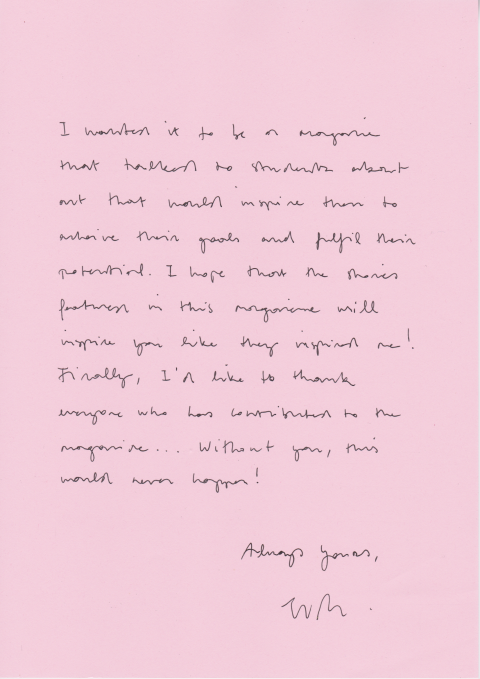 I wanted it to be a magazine
that talked to students about
art that would inspire them to
acheive their goals and fulfil their
potential. I hope that the stories
featured in this magazine will
inspire you like they inspired me!
Finally, I'd like to thank
everyone who has contributed to the
magazine... Without you, this
would never happen!
Always Yours,